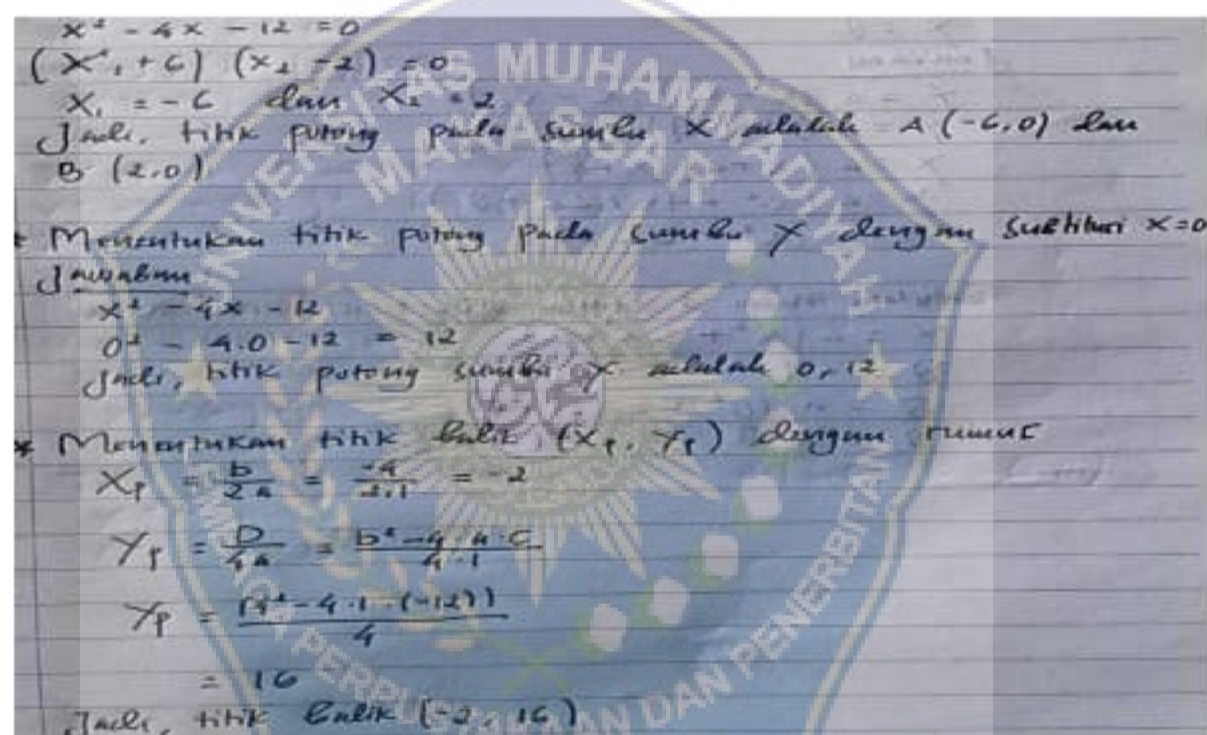 x² - 4x - 12 = 0
(x₁ + 6) (x₂ - 2) = 0
x₁ = -6 dan x₂ = 2
Jadi, titik potong pada sumbu x adalah A (-6,0) dan
B (2,0)
* Menentukan titik potong pada sumbu y dengan subtitusi x=0
Jawaban
x² - 4x - 12
0² - 4.0 - 12 = 12
Jadi, titik potong sumbu y adalah 0, 12
* Menentukan titik balik (Xp, Yp) dengan rumus
Xp = b/2a = -4/2.1 = -2
Yp = D/4a = b² - 4.a.c/4.1
Yp = (4² - 4.1.(-12))/4
= 16
Jadi, titik balik (-2, 16)
UNIVERSITAS MUHAMMADIYAH
MAKASSAR
LEMBAGA PERPUSTAKAAN DAN PENERBITAN